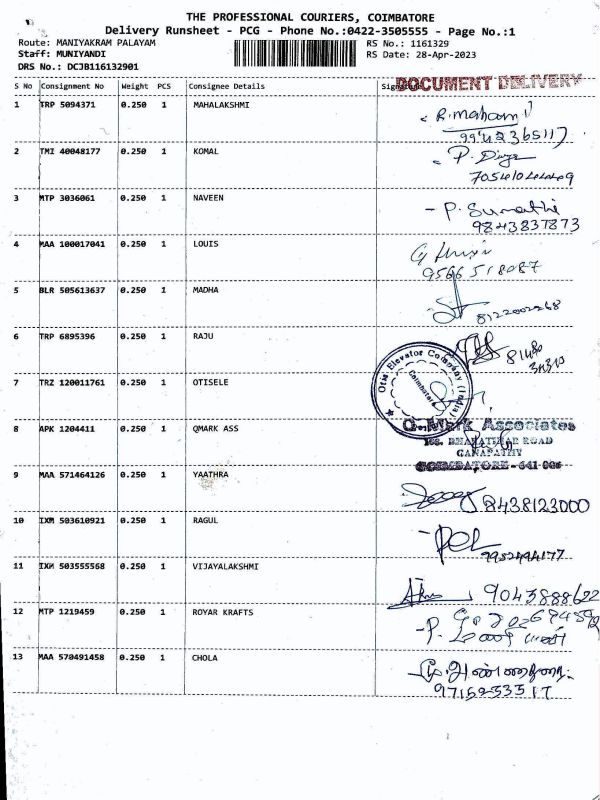 THE PROFESSIONAL COURIERS, COIMBATORE
Delivery Runsheet - PCG - Phone No.:0422-3505555 - Page No.:1
Route: MANIYAKRAM PALAYAM RS No.: 1161329
Staff: MUNIYANDI RS Date: 28-Apr-2023
DRS No.: DCJB116132901
DOCUMENT DELIVERY
S No Consignment No Weight PCS Consignee Details
1 TRP 5094371 0.250 1 MAHALAKSHMI
2 TMI 40048177 0.250 1 KOMAL
P. Divya
3 MTP 3036061 0.250 1 NAVEEN
- P. Sumathi
9843837873
4 MAA 100017041 0.250 1 LOUIS
9566518087
5 BLR 505613637 0.250 1 MADHA
8122002268
6 TRP 6895396 0.250 1 RAJU
7 TRZ 120011761 0.250 1 OTISELE
Otis Elevator Company (India)
Coimbatore
8 APK 1204411 0.250 1 QMARK ASS
Q-Mark Associates
ROAD
GANAPATHY
COIMBATORE - 641 006
9 MAA 571464126 0.250 1 YAATHRA
8438123000
10 IXM 503610921 0.250 1 RAGUL
11 IXM 503555568 0.250 1 VIJAYALAKSHMI
9043888622
12 MTP 1219459 0.250 1 ROYAR KRAFTS
13 MAA 570491458 0.250 1 CHOLA